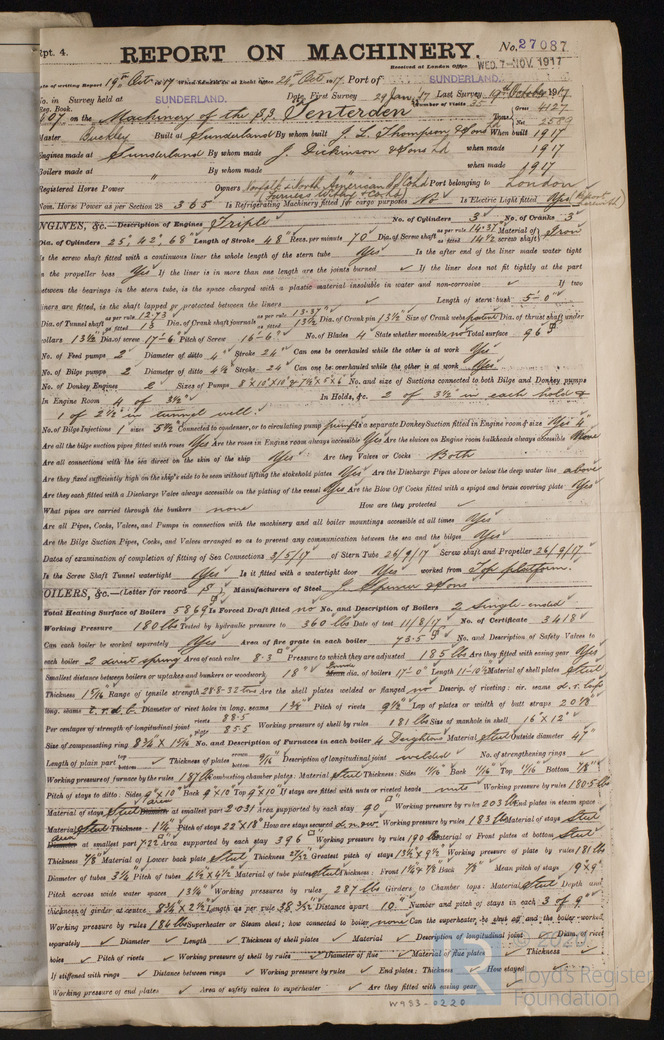 Rpt. 4.
REPORT ON MACHINERY.
No. 27087
Received at London Office WED. 7-NOV. 1917
Date of writing Report 19th Oct 1917 When handed in at Local Office 24th Oct 1917 Port of SUNDERLAND.
No. in Survey held at SUNDERLAND. Date, First Survey 29 Jan, 17 Last Survey 19th October 1917
Reg. Book. Number of Visits 35
107 on the Machinery of the S.S. Tenterden Tons Gross 4127 Net 2559
Master Buckley Built at Sunderland By whom built J. L. Thompson & Sons Ld When built 1917
Engines made at Sunderland By whom made J. Dickinson & Sons Ld when made 1917
Boilers made at " By whom made " when made 1917
Registered Horse Power Owners Norfolk & North American S/S Co Ld Port belonging to London
(Furness Withy & Co Ld)
Nom. Horse Power as per Section 28 365 Is Refrigerating Machinery fitted for cargo purposes No Is Electric Light fitted Yes (Report herewith)
ENGINES, &c.—Description of Engines Triple No. of Cylinders 3 No. of Cranks 3
Dia. of Cylinders 25", 42", 68" Length of Stroke 48" Revs. per minute 70 Dia. of Screw shaft as per rule 14.37" as fitted 14 1/2" Material of screw shaft Iron
Is the screw shaft fitted with a continuous liner the whole length of the stern tube Yes Is the after end of the liner made water tight
in the propeller boss Yes If the liner is in more than one length are the joints burned ✓ If the liner does not fit tightly at the part
between the bearings in the stern tube, is the space charged with a plastic material insoluble in water and non-corrosive ✓ If two
liners are fitted, is the shaft lapped or protected between the liners ✓ Length of stern bush 5'-0"
Dia. of Tunnel shaft as per rule 12.73 as fitted 13 Dia. of Crank shaft journals as per rule 13.37" as fitted 13 1/2 Dia. of Crank pin 13 1/2 Size of Crank webs Dia. of thrust shaft under
collars 13 1/2 Dia. of screw 17-6" Pitch of Screw 16-6" No. of Blades 4 State whether moveable no Total surface 96
No. of Feed pumps 2 Diameter of ditto 4" Stroke 24" Can one be overhauled while the other is at work Yes
No. of Bilge pumps 2 Diameter of ditto 4 1/2 Stroke 24 Can one be overhauled while the other is at work Yes
No. of Donkey Engines 2 Sizes of Pumps 8"x10"x10" & 7 1/2 x 5 x 6 No. and size of Suctions connected to both Bilge and Donkey pumps
In Engine Room 4 of 3 1/2" In Holds, &c. 2 of 3 1/2" in each hold &
1 of 2 1/2" in tunnel well.
No. of Bilge Injections 1 sizes 5 1/2" Connected to condenser, or to circulating pump pump Is a separate Donkey Suction fitted in Engine room & size Yes 4"
Are all the bilge suction pipes fitted with roses Yes Are the roses in Engine room always accessible Yes Are the sluices on Engine room bulkheads always accessible None
Are all connections with the sea direct on the skin of the ship Yes Are they Valves or Cocks Both
Are they fixed sufficiently high on the ship's side to be seen without lifting the stokehold plates Yes Are the Discharge Pipes above or below the deep water line above
Are they each fitted with a Discharge Valve always accessible on the plating of the vessel Yes Are the Blow Off Cocks fitted with a spigot and brass covering plate Yes
What pipes are carried through the bunkers none How are they protected ✓
Are all Pipes, Cocks, Valves, and Pumps in connection with the machinery and all boiler mountings accessible at all times Yes
Are the Bilge Suction Pipes, Cocks, and Valves arranged so as to prevent any communication between the sea and the bilges Yes
Dates of examination of completion of fitting of Sea Connections 3/5/17 of Stern Tube 26/9/17 Screw shaft and Propeller 26/9/17
Is the Screw Shaft Tunnel watertight Yes Is it fitted with a watertight door Yes worked from Top platform.
BOILERS, &c.—(Letter for record S) Manufacturers of Steel J. Spencer & Sons
Total Heating Surface of Boilers 5869 Is Forced Draft fitted no No. and Description of Boilers 2 Single-ended
Working Pressure 180 lbs Tested by hydraulic pressure to 360 lbs Date of test 11/8/17 No. of Certificate 3418
Can each boiler be worked separately Yes Area of fire grate in each boiler 73.5 No. and Description of Safety Valves to
each boiler 2 direct spring Area of each valve 8.3 Pressure to which they are adjusted 185 lbs Are they fitted with easing gear Yes
Smallest distance between boilers or uptakes and bunkers or woodwork 18" dia. of boilers 17'-0" Length 11-10 1/2 Material of shell plates Steel
Thickness 1 5/16 Range of tensile strength 28.8-32 tons Are the shell plates welded or flanged no Descrip. of riveting: cir. seams d.r. laps
long. seams t.r.d.b. Diameter of rivet holes in long. seams 1 3/8" Pitch of rivets 9 1/2" Lap of plates or width of butt straps 20 1/8"
Per centages of strength of longitudinal joint rivets 88.5 plate 85.5 Working pressure of shell by rules 181 lbs Size of manhole in shell 16"x12"
Size of compensating ring 8 3/4 x 1 5/16 No. and Description of Furnaces in each boiler 4 Deightons Material Steel Outside diameter 47"
Length of plain part top bottom Thickness of plates crown bottom 9/16" Description of longitudinal joint welded No. of strengthening rings ✓
Working pressure of furnace by the rules 187 lbs Combustion chamber plates: Material Steel Thickness: Sides 11/16" Back 11/16" Top 11/16" Bottom 7/8"
Pitch of stays to ditto: Sides 9"x10" Back 9"x10" Top 9"x10" If stays are fitted with nuts or riveted heads nuts Working pressure by rules 180.5 lbs
Material of stays Steel area at smallest part 2.031 Area supported by each stay 90 Working pressure by rules 203 lbs End plates in steam space:
Material Steel Thickness 1 1/4" Pitch of stays 22"x18" How are stays secured d.n.&w. Working pressure by rules 183 lbs Material of stays Steel
area at smallest part 7.22 Area supported by each stay 396 Working pressure by rules 190 lbs Material of Front plates at bottom Steel
Thickness 7/8" Material of Lower back plate Steel Thickness 27/32 Greatest pitch of stays 13 1/4 x 9 1/2 Working pressure of plate by rules 181 lbs
Diameter of tubes 3 1/4 Pitch of tubes 4 1/2 x 4 1/2 Material of tube plates Steel Thickness: Front Back 7/8" Mean pitch of stays 19 x 9"
Pitch across wide water spaces 13 1/4" Working pressures by rules 287 lbs Girders to Chamber tops: Material Steel Depth and
thickness of girder at centre 8 3/4 x 2 1/2 Length as per rule Distance apart 10" Number and pitch of stays in each 3 of 9"
Working pressure by rules 186 lbs Superheater or Steam chest; how connected to boiler none Can the superheater be shut off and the boiler worked
separately ✓ Diameter ✓ Length ✓ Thickness of shell plates ✓ Material ✓ Description of longitudinal joint ✓ Diam. of rivet
holes ✓ Pitch of rivets ✓ Working pressure of shell by rules ✓ Diameter of flue ✓ Material of flue plates ✓ Thickness ✓
If stiffened with rings ✓ Distance between rings ✓ Working pressure by rules ✓ End plates: Thickness ✓ How stayed ✓
Working pressure of end plates ✓ Area of safety valves to superheater ✓ Are they fitted with easing gear ✓
© 2020
Lloyd's Register
Foundation
W933-0220